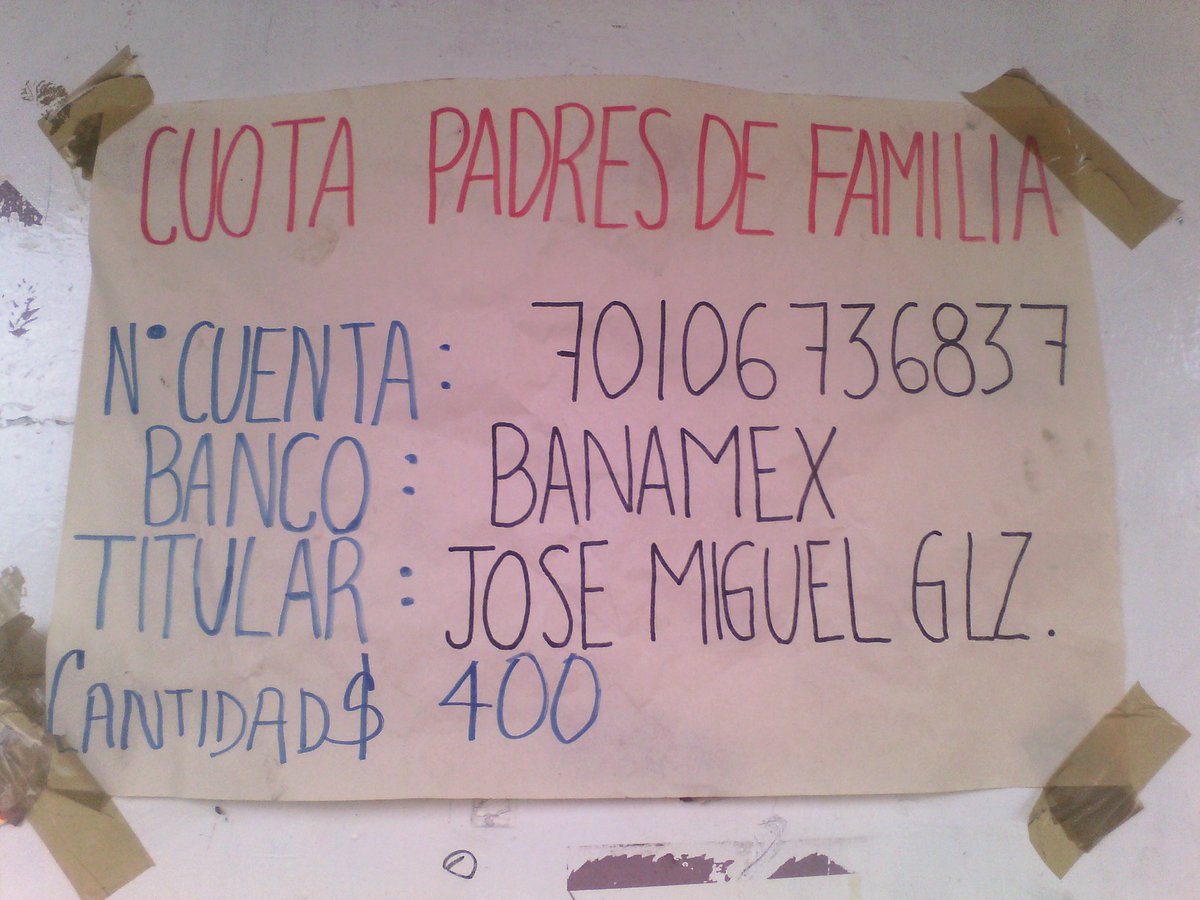 CUOTA PADRES DE FAMILIA
N° CUENTA: 70106736837
BANCO: BANAMEX
TITULAR: JOSE MIGUEL GLZ.
CANTIDAD $ 400